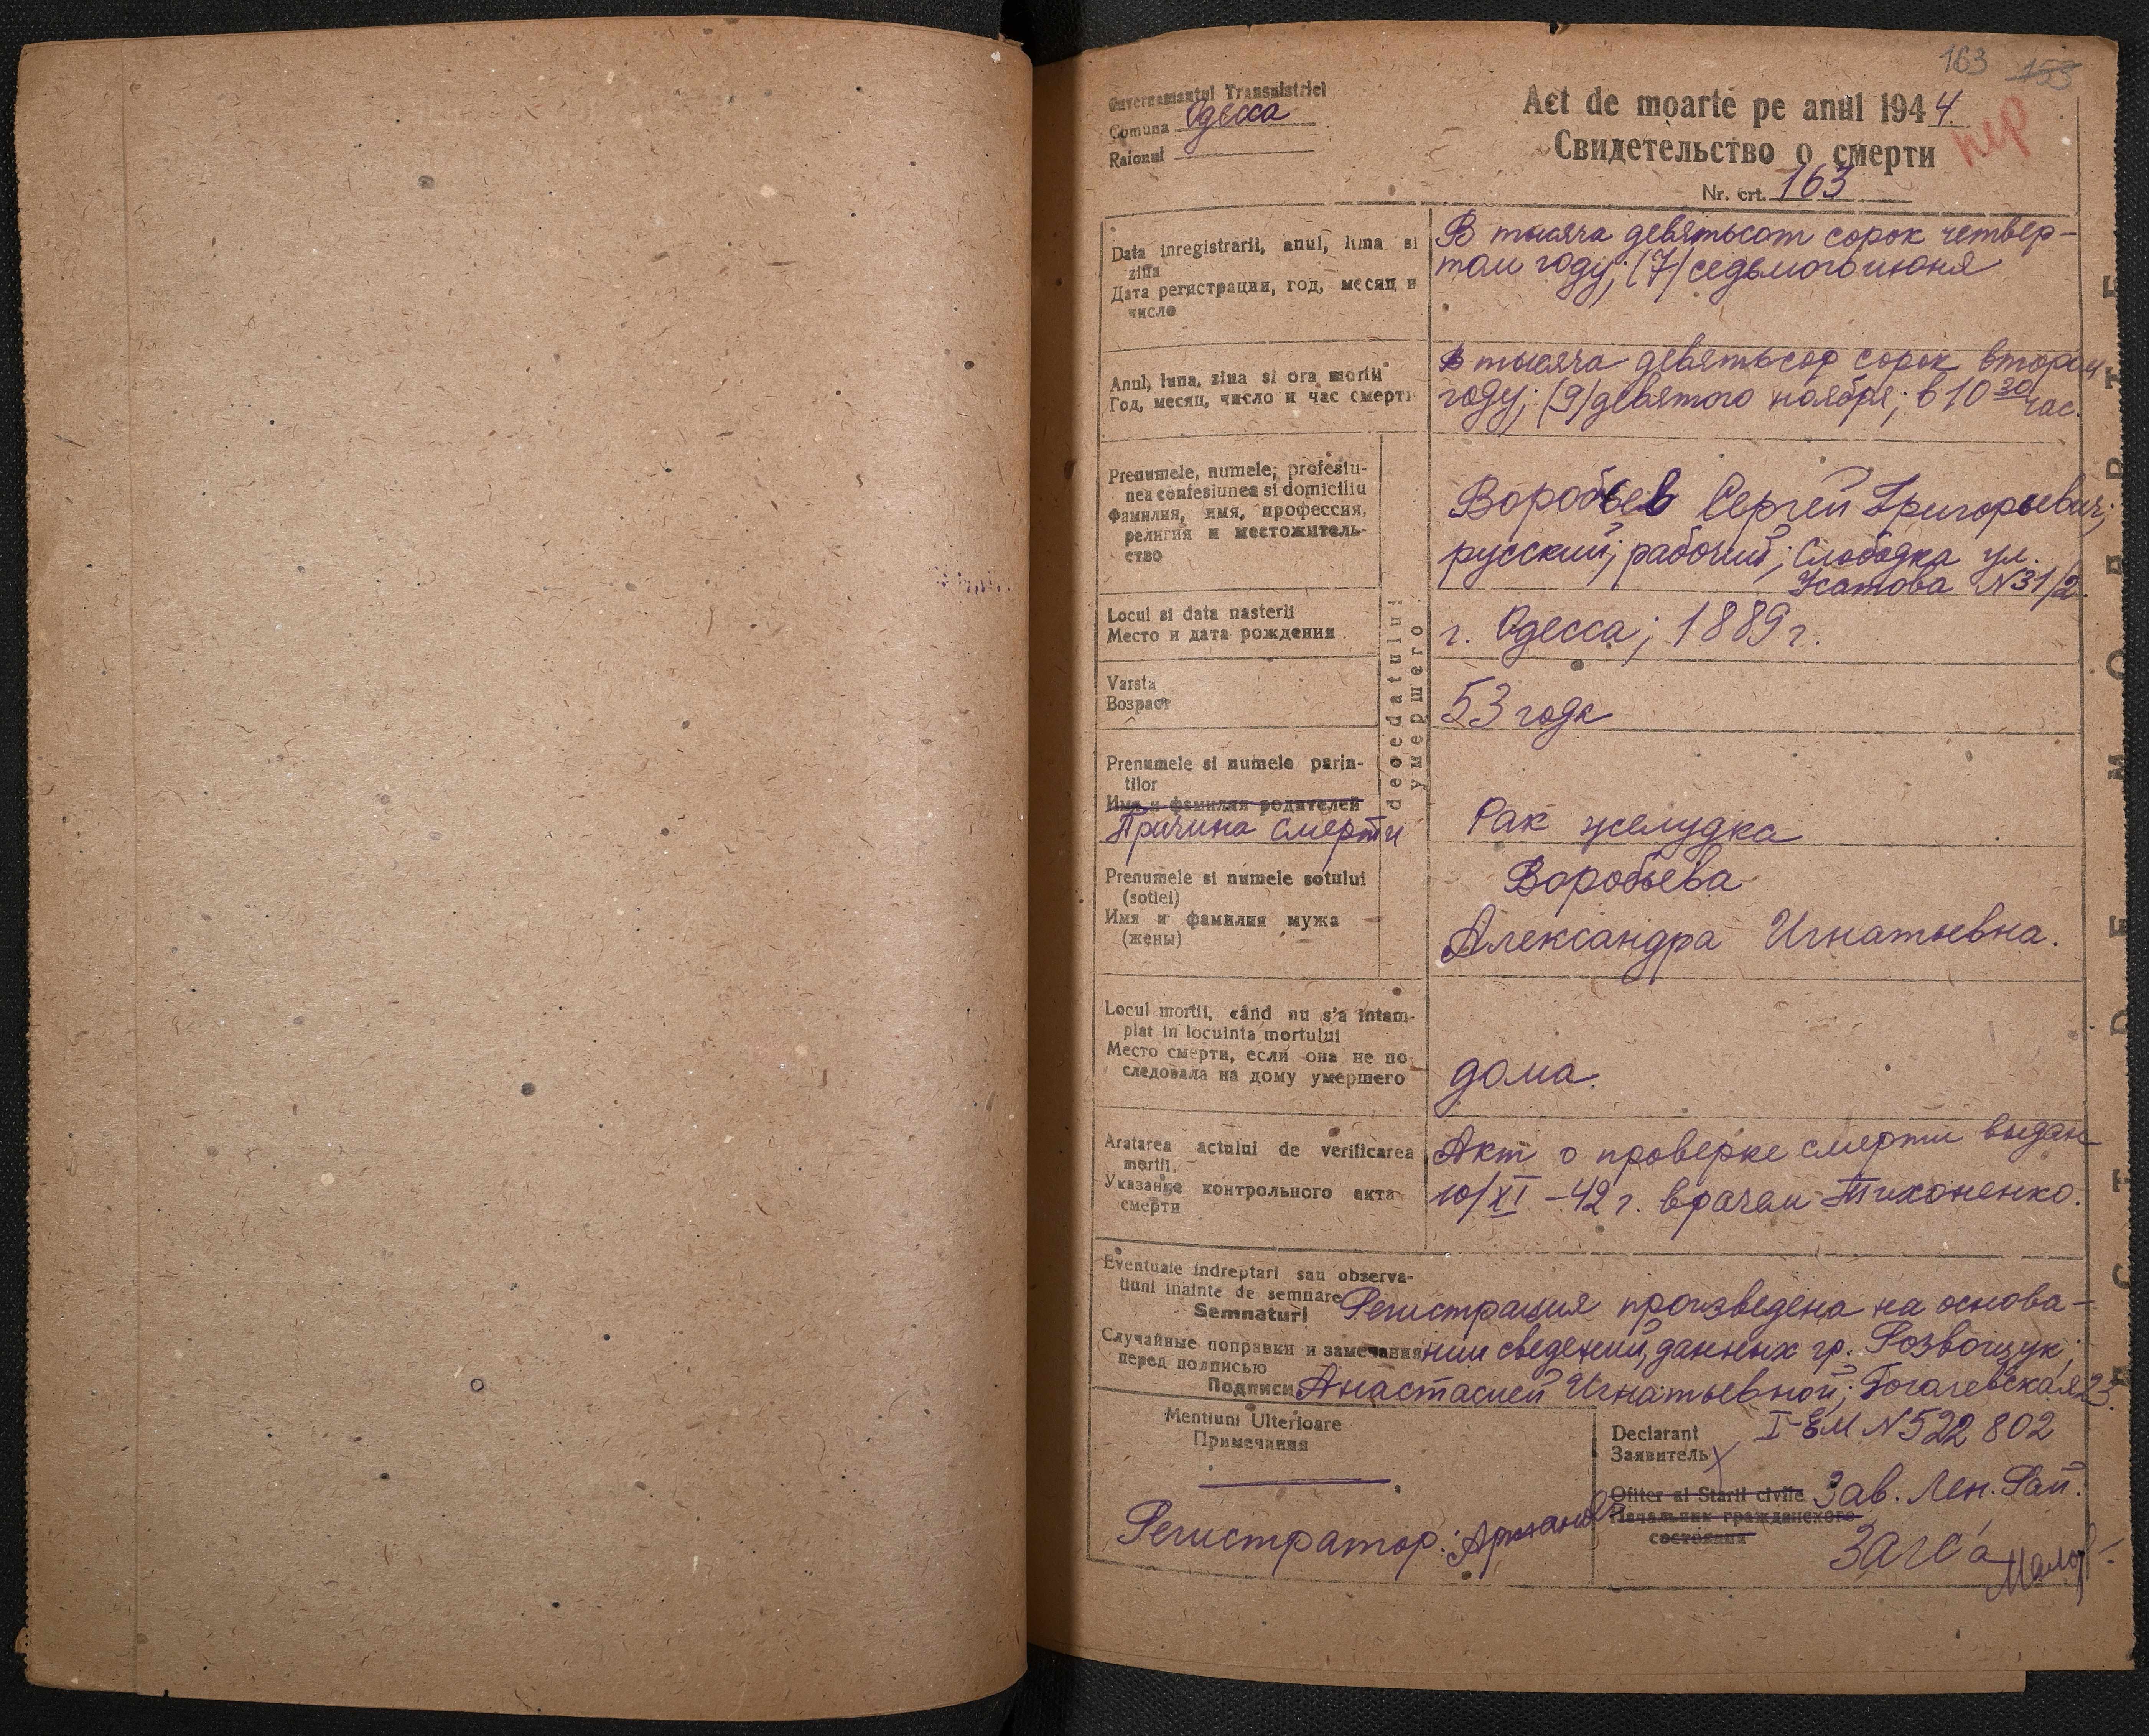 163 153
Guvernamantul Transnistriei
Comuna Одесса
Raionul
Act de moarte pe anul 1944
Свидетельство о смерти
Nr. crt. 163
Data inregistrarii, anul, luna si
ziua
Дата регистрации, год, месяц и
число
В тысяча девятьсот сорок четвер-
том году; (7) седьмого июня
Anul, luna, ziua si ora mortii
Год, месяц, число и час смерти
В тысяча девятьсот сорок втором
году; (9) девятого ноября; в 10 30 час.
Prenumele, numele, profesiu-
nea confesiunea si domiciliu
Фамилия, имя, профессия,
религия и местожитель-
ство
Воробьев Сергей Григорьевич;
русский; рабочий; Слободка ул.
Усатова N31/2.
Locul si data nasterii
Место и дата рождения
г. Одесса; 1889 г.
Varsta
Возраст
53 года
Prenumele si numele parin-
tilor
Имя и фамилия родителей
Причина смерти
Рак желудка
decedatului
умершего
Prenumele si numele sotului
(sotiei)
Имя и фамилия мужа
(жены)
Воробьева
Александра Игнатьевна.
Locul mortii, când nu s'a intam-
plat in locuinta mortului
Место смерти, если она не по
следовала на дому умершего
дома.
Aratarea actului de verificarea
mortii.
Указание контрольного акта
смерти
Акт о проверке смерти выдан
10/XI -42 г. врачем Тихоненко.
Eventuale indreptari sau observa-
tiuni inainte de semnare
Semnaturi
Случайные поправки и замечания
перед подписью
Подписи
Регистрация произведена на основа-
нии сведений, данных гр. Розвощук
Анастасией Игнатьевной; Богачевская 23.
Mentiuni Ulterioare
Примечания
Declarant
Заявитель
I-ЕМ N 522 802
Ofiter al Starii civile
Начальник гражданского
состояния
Зав. Лен. Рай.
ЗАГС'а
Регистратор: